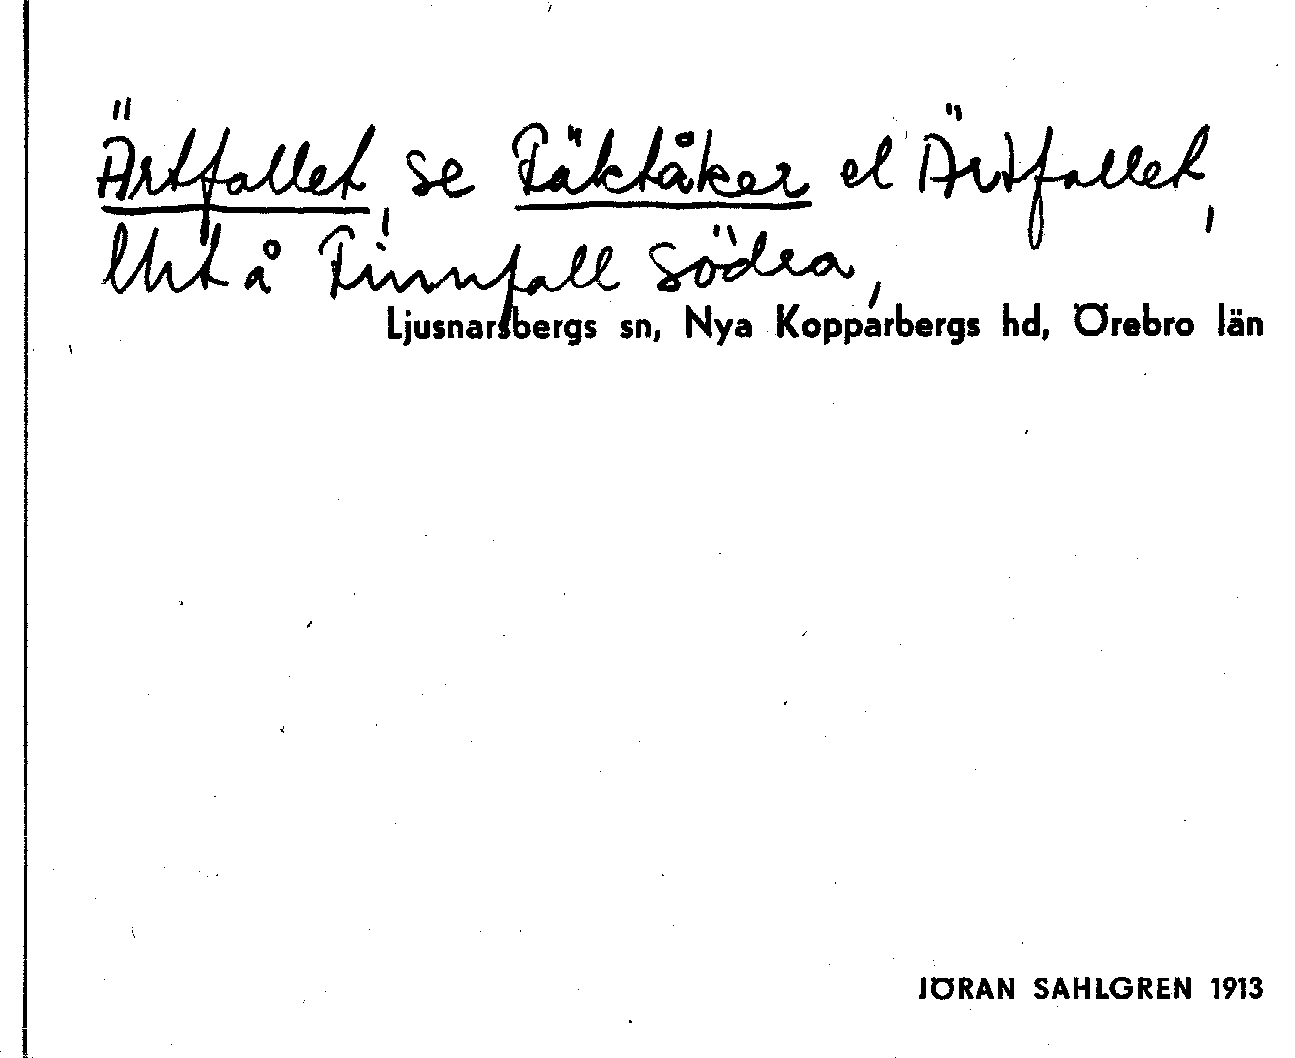 Ärtfallet, se Fäktåker el Ärtfallet,
lht å Finnfall södra,
Ljusnarsbergs sn, Nya Kopparbergs hd, Örebro län
JÖRAN SAHLGREN 1913